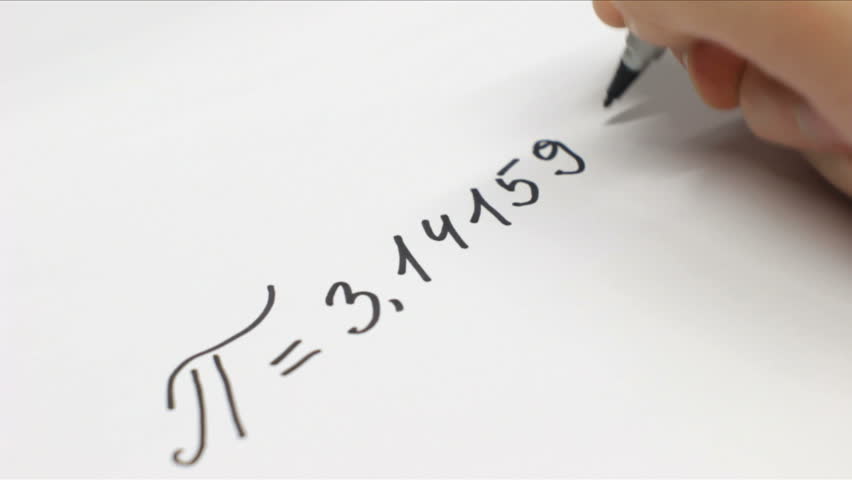 π = 3,14159